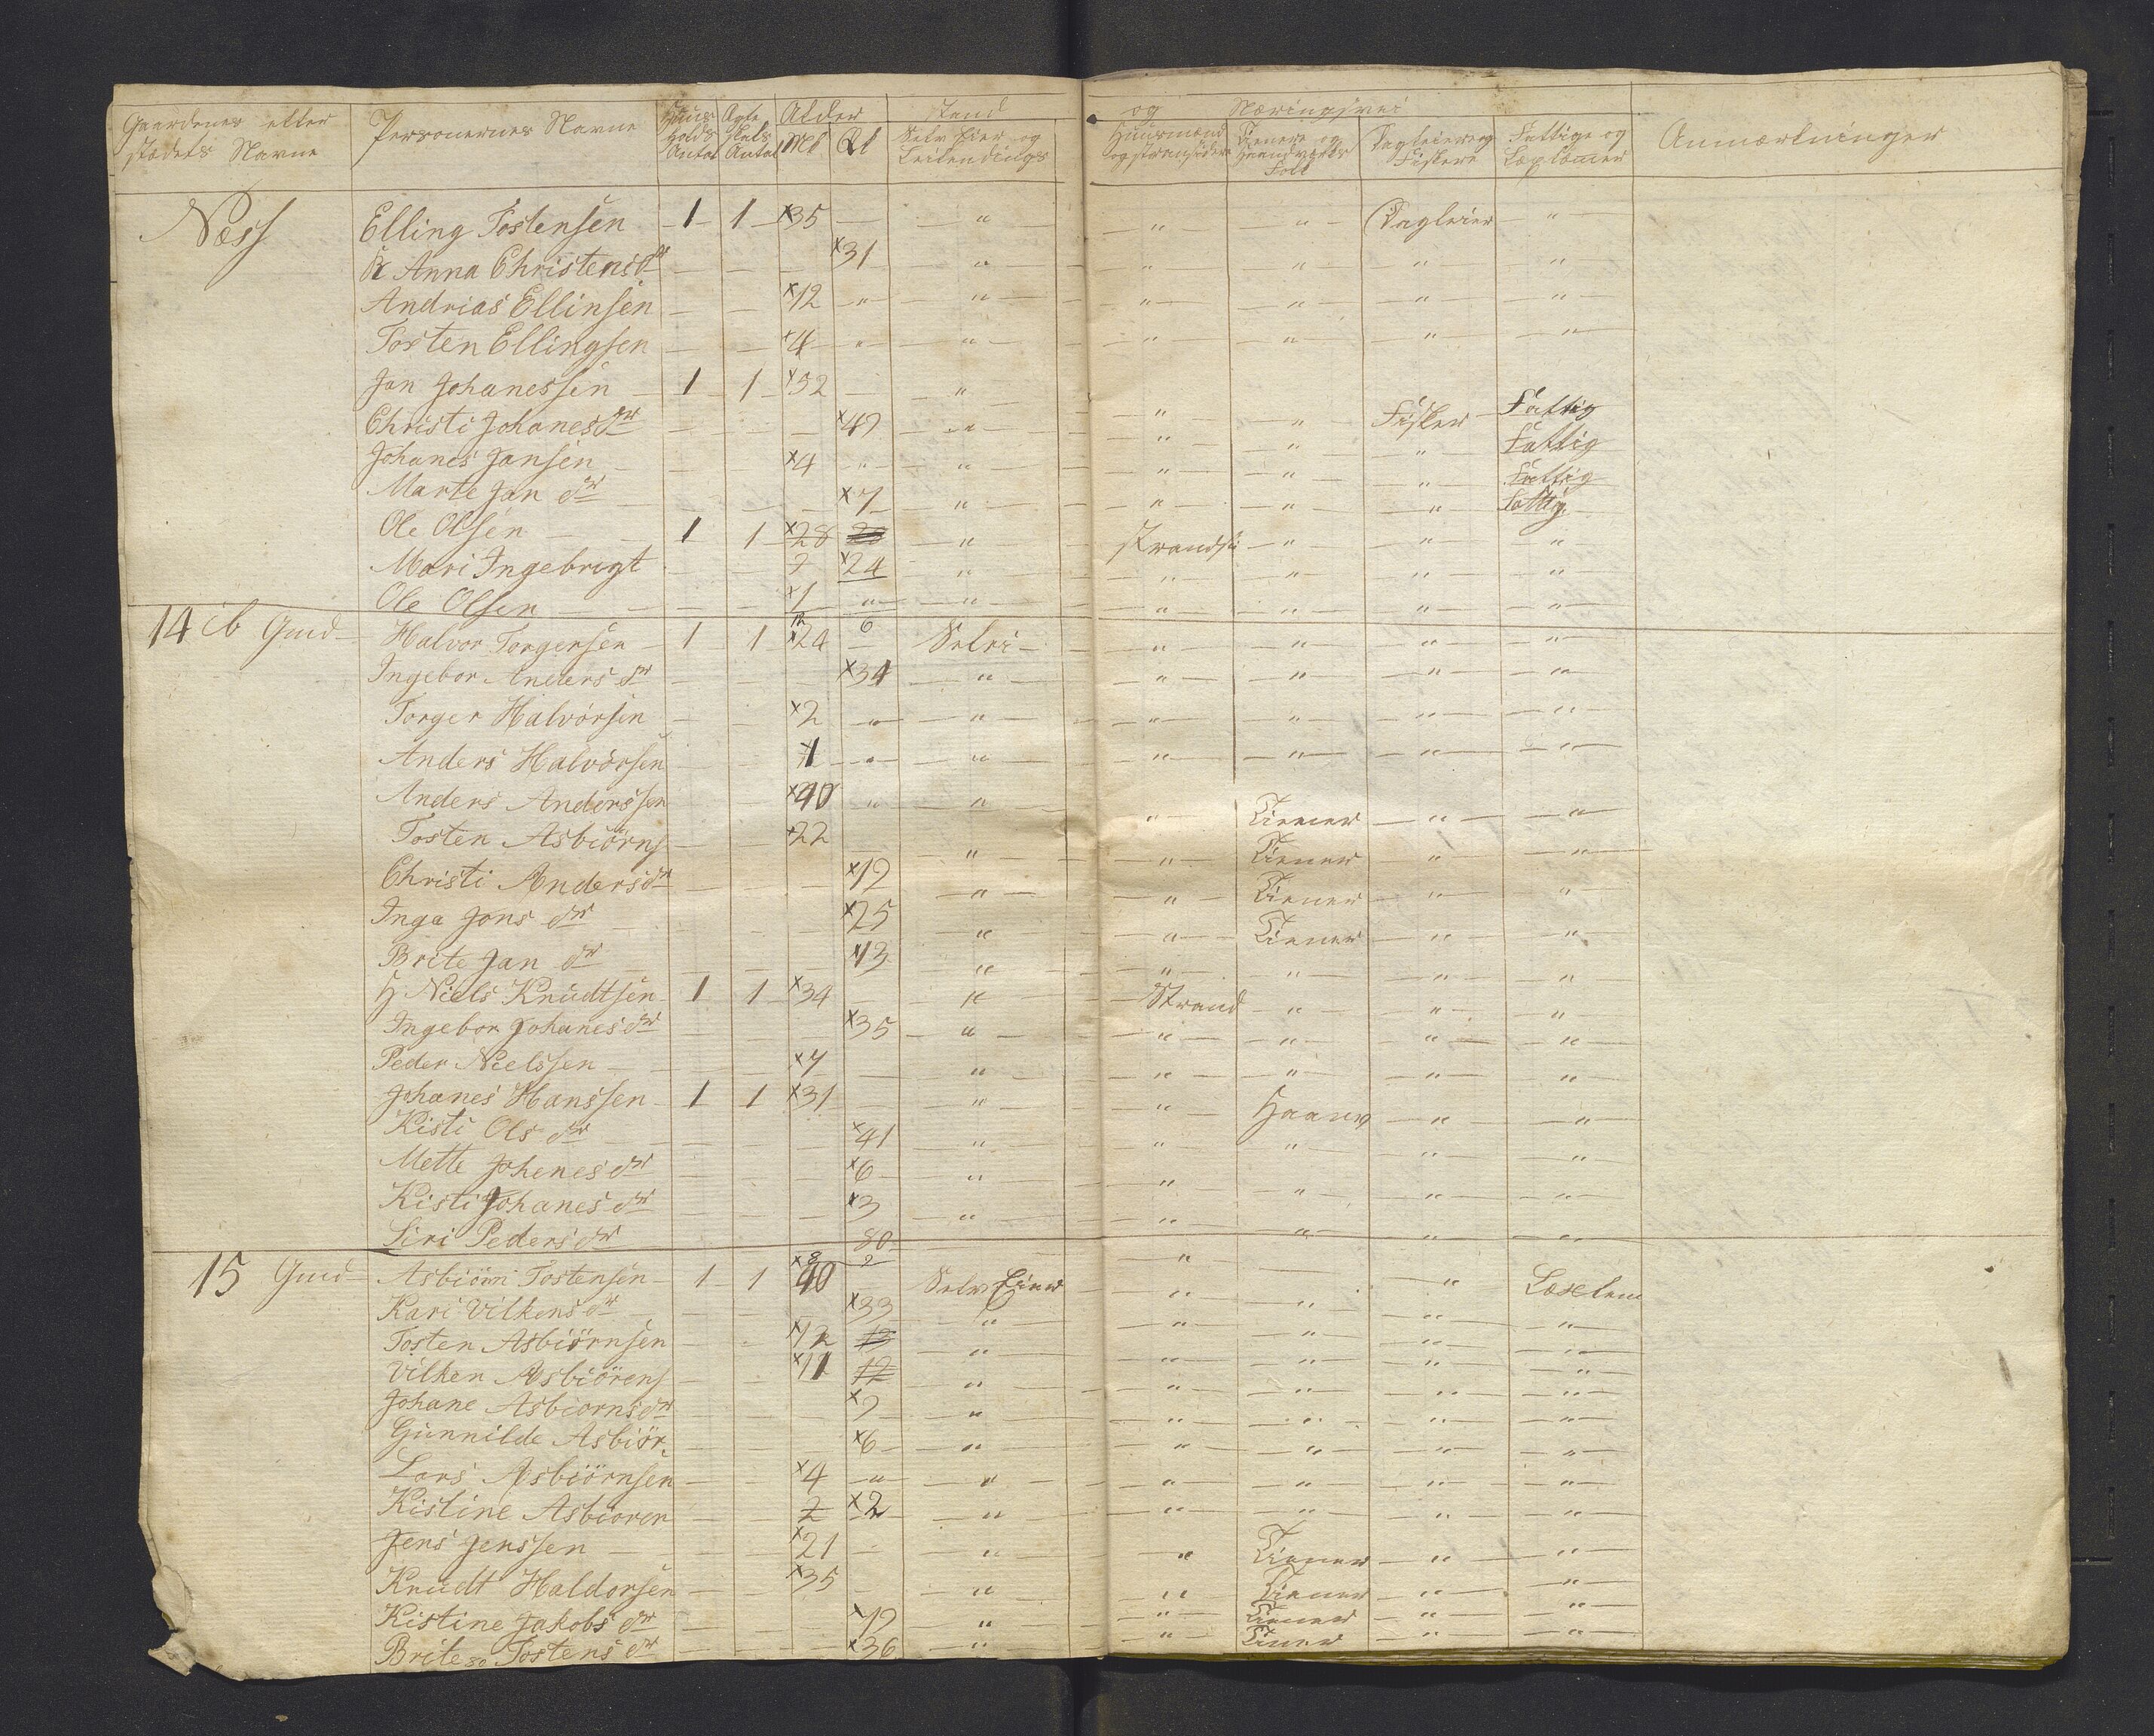 Gaardenes eller stædets Navne | Personernes Navne | Huusholds Antal | Ægteskabs Antal | Alder Mk Qk | Stand Selv Eier og Leilendings | og Næringsvei Huusmænd og Strandsidere | Tienere og Haandværks Folk | Dagleiere og Fiskere | Fattige og Læglemer | Anmærkninger
Næss Elling Tostensen 1 1 35 Dagleier
Anna Christensdr 31
Andrias Ellinsen 12
Torsten Ellingsen 4
Jan Johanessen 1 1 52 Fisker Fattig
Christi Johanesdr 49 Fattig
Johanes Jansen 4 Fattig
Marte Jan dr 7 Fattig
Ole Olsen 1 1 28 Strandsi
Mari Ingebrigt 24
Ole Olsen 1
12 6
14 ib Gmd Halvor Torgersen 1 1 24 Selvei
Ingebor Anders dr 34
Torger Halvorsen 2
Anders Halvorsen 1
Anders Anderssen 40 Tiener
Tosten Asbiörns 22 Tiener
Christi Andersdr 19 Tiener
Inga Jons dr 25 Tiener
Brite Jan dr 13
H Niels Knudtsen 1 1 34 Strand
Ingebor Johanesdr 35
Peder Nielssen 7
Johanes Hanssen 1 1 31 Haanv
Kisti Ols dr 41
Mette Johenesdr 6
Kisti Johanesdr 3
Siri Pedersdr 80
8 2
15 Gmd Asbiörn Tostensen 1 1 40 Selv Eier Læxlem
Kari Vilkensdr 33
Tosten Asbiörnsen 12
Vilken Asbiörens 11
Johane Asbiornsdr 9
Gunnilde Asbiör 6
Lars Asbiörnsen 4
Kistine Asbioren 2
Jens Jenssen 21 Tiener
Knudt Haldorsen 35 Tiener
Kistine Jakobs dr 19 Tiener
Brite Tostens dr 36 Tiener